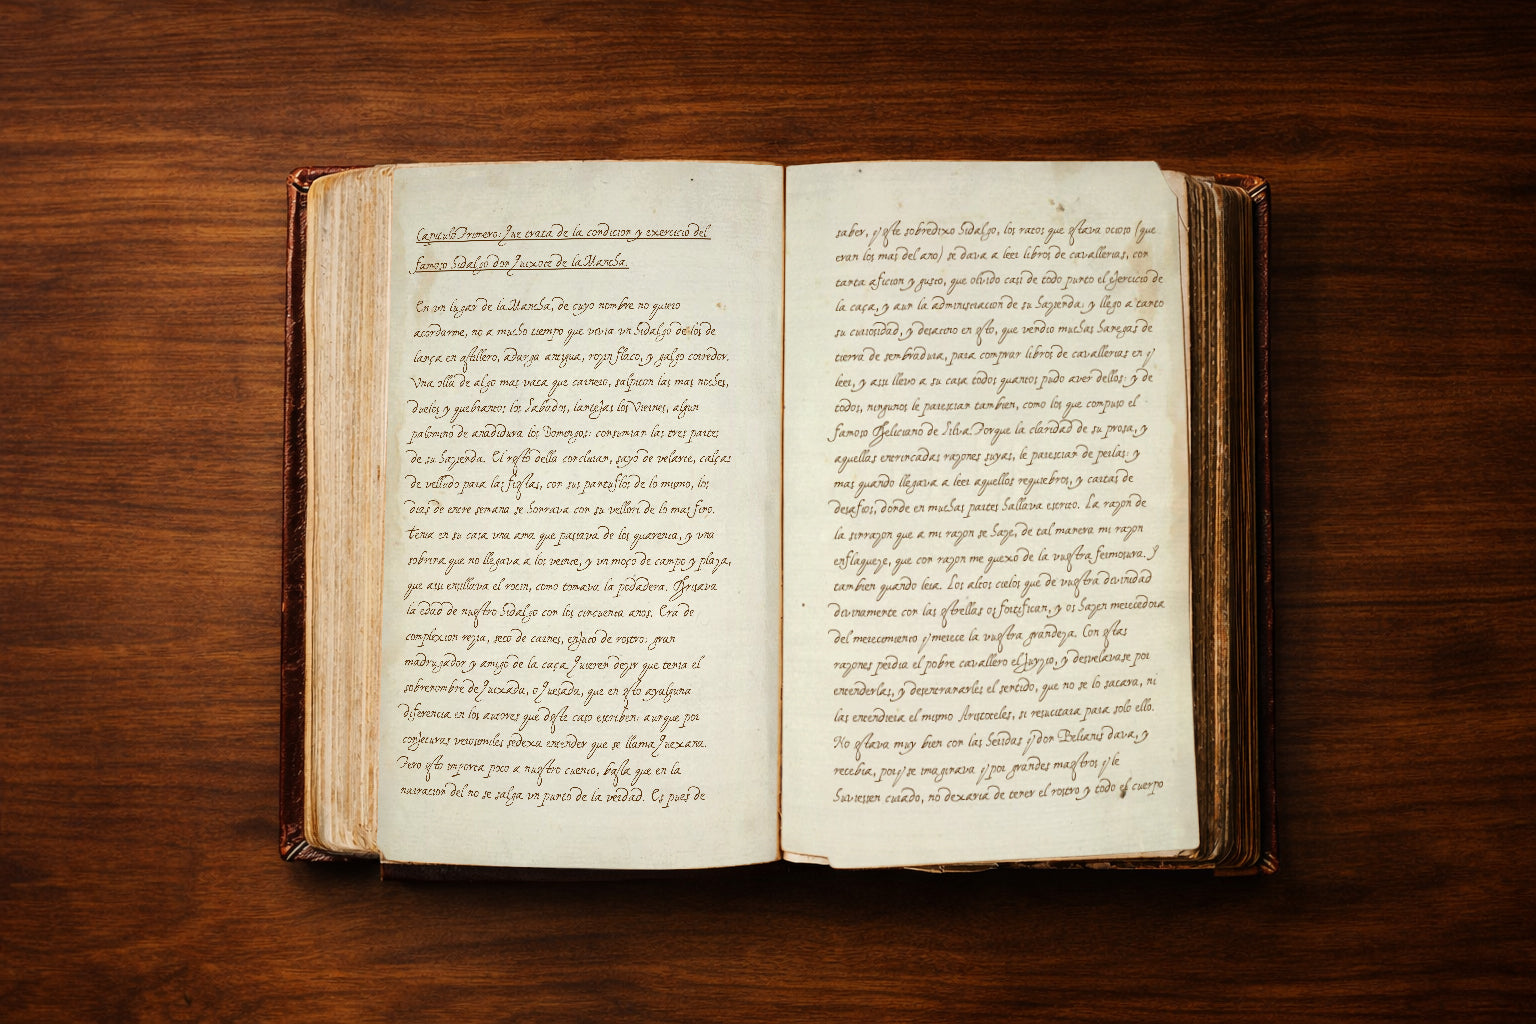 Capitulo Primero: Que trata de la condicion y exercicio del
famoso hidalgo don Quixote de la Mancha.
En un lugar de la Mancha, de cuyo nombre no quiero
acordarme, no a mucho tiempo que vivia vn hidalgo de los de
lança en astillero, adarga antigua, rozin flaco, y galgo corredor.
Vna olla de algo mas vaca que carnero, salpicon las mas noches,
duelos y quebrantos los Sabados, lantejas los Viernes, algun
palomino de anadidura los Domingos: consumian las tres partes
de su hazienda. El resto della concluian, sayo de velarte, calças
de velludo para las fiestas, con sus pantuflos de lo mismo, los
dias de entre semana se honrava con su vellori de lo mas fino.
Tenia en su casa vna ama que passava de los quarenta, y vna
sobrina que no llegava a los veinte, y vn moço de campo y plaza,
que assi ensillava el rocin, como tomava la podadera. Frisava
la edad de nuestro hidalgo con los cincuenta anos. Era de
complexion rezia, seco de carnes, enjuto de rostro: gran
madrugador y amigo de la caça. Quieren dezir que tenia el
sobrenombre de Quixada, o Quesada, que en esto ay alguna
diferencia en los autores que deste caso escriben: aunque por
conjeturas verosimiles se dexa entender que se llama Quexana.
Pero esto importa poco a nuestro cuento, basta que en la
narracion del no se salga vn punto de la verdad. Es pues de
saber, q̃ este sobredixo hidalgo, los ratos que estava ocioso (que
eran los mas del ano) se dava a leer libros de cavallerias, con
tanta aficion y gusto, que olvido casi de todo punto el exercicio de
la caça, y aun la administracion de su hazienda: y llego a tanto
su curiosidad, y desatino en esto, que vendio muchas hanegas de
tierra de sembradura, para comprar libros de cavallerias en q̃
leer, y assi llevo a su casa todos quantos pudo aver dellos: y de
todos, ningunos le parescian tambien, como los que compuso el
famoso Feliciano de Silva. Porque la claridad de su prosa, y
aquellas entrincadas razones suyas, le parescian de perlas: y
mas quando llegava a leer aquellos requiebros, y cartas de
desafios, donde en muchas partes hallava escrito. La razon de
la sinrazon que a mi razon se haze, de tal manera mi razon
enflaqueze, que con razon me quexo de la vuestra fermosura. Y
tambien quando leia. Los altos cielos que de vuestra divinidad
divinamente con las estrellas os fortifican, y os hazen merecedora
del merecimiento q̃ merece la vuestra grandeza. Con estas
razones perdia el pobre cavallero el juyzio, y desvelavase por
entenderlas, y desentranarles el sentido, que no se lo sacara, ni
las entendiera el mismo Aristoteles, si resucitara para solo ello.
No estava muy bien con las heridas q̃ don Belianis dava, y
recebia, porq̃ se imaginava q̃ por grandes maestros q̃ le
huviessen curado, no dexaria de tener el rostro y todo el cuerpo